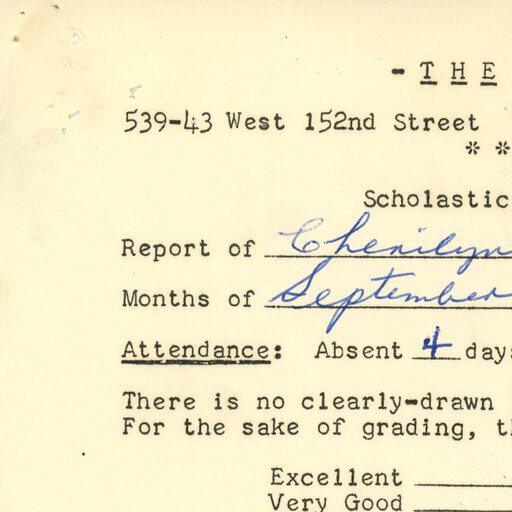 - THE
539-43 West 152nd Street
* *
Scholastic
Report of Cherilyn
Months of September
Attendance: Absent 4 days
There is no clearly-drawn
For the sake of grading, th
Excellent
Very Good